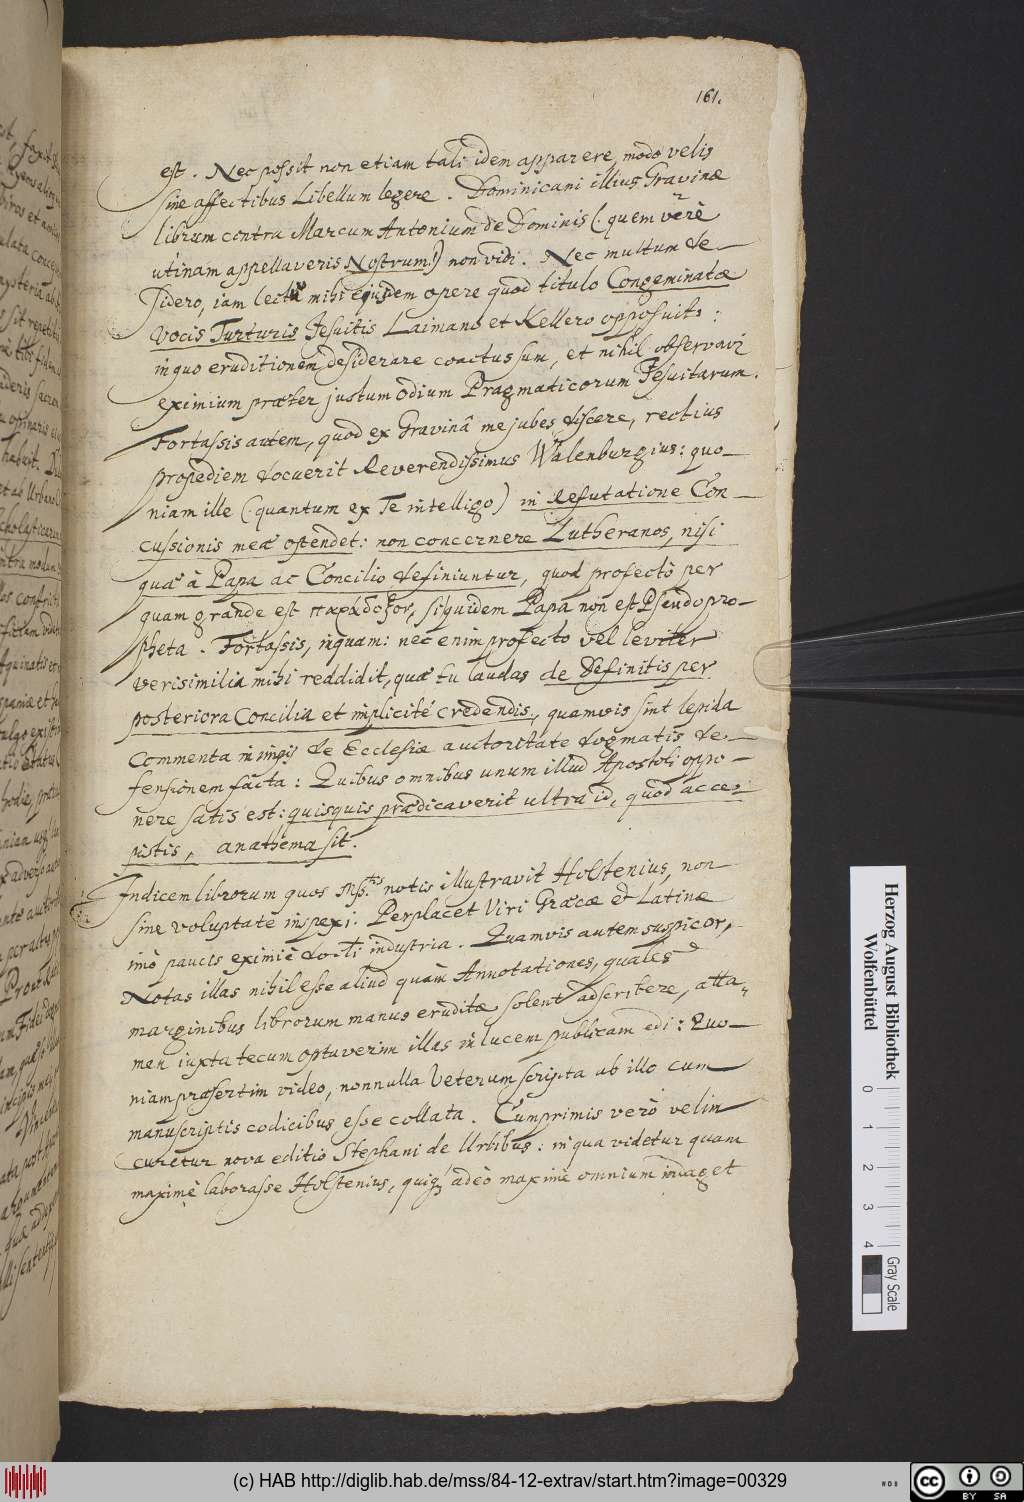 161.
est. Nec possit non etiam tali idem apparere, modo velis
sine affectibus Libellum legere. Dominicani illius Gravinæ
librum contra Marcum Antonium de Dominis (: quem verè
utinam appellaveris Nostrum!) non vidi. Nec multum de-
sidero, iam lecto mihi ejusdem opere quod titulo Congeminatæ
vocis Turturis Jesuitis Laimano et Kellero opposuit:
in quo eruditionem desiderare coactus sum, et nihil observavi
eximium præter justum odium Pragmaticorum Jesuitarum.
Fortassis autem, quod ex Gravinâ me jubes discere, rectius
propediem docuerit Reverendissimus Walenburgius: quo-
niam ille (: quantum ex Te intelligo) in Refutatione Con-
cussionis meæ ostendet: non concernere Lutheranos, nisi
quæ à Papa ac Concilio definiuntur, quod profectò per
quam grande est παράδοξον, siquidem Papa non est Pseudopro-
pheta. Fortassis, inquam: nec enim profecto vel leviter
verisimilia mihi reddidit, quæ tu laudas de Definitis per
posteriora Concilia et implicité credendis, quamvis sint lepida
commenta in impij de Ecclesiæ auctoritate dogmatis de-
fensionem facta: Quibus omnibus unum illud Apostoli oppo-
nere satis est: quisquis prædicaverit ultra id, quod acce-
pistis, anathema sit.
Indicem librorum quos Mss.tis notis illustravit Holstenius, non
sine voluptate inspexi. Perplacet Viri Græcæ et Latinæ
imò paucis eximiè docti industria. Quamvis autem suspicor,
Notas illas nihil esse aliud quàm Annotationes, quales
marginibus librorum manus eruditæ solent adscribere, atta-
men iuxta tecum optaverim illas in lucem publicam edi: Quo-
niam præsertim video, nonnulla Veterum scripta ab illo cum
manuscriptis codicibus esse collata. Cumprimis verò velim
curetur nova editio Stephani de Urbibus: in qua videtur quam
maximè laborasse Holstenius, quiq3 adeò maximè omnium indaget
Herzog August Bibliothek
Wolfenbüttel
0 1 2 3 4
Gray Scale
(c) HAB http://diglib.hab.de/mss/84-12-extrav/start.htm?image=00329
cc BY SA